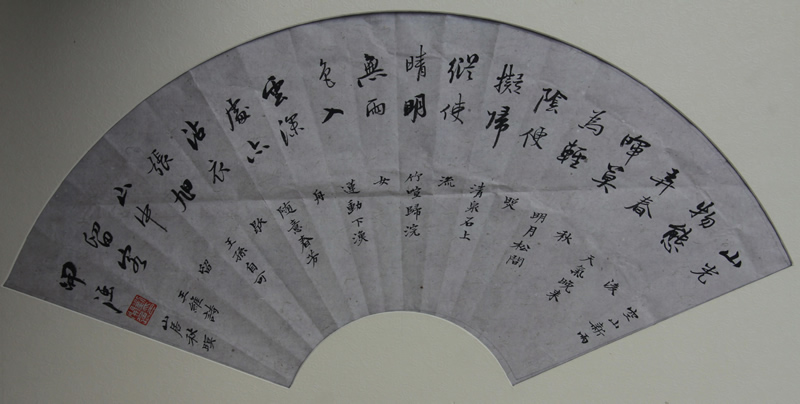 山光
物態
弄春
暉莫
為輕
陰便
擬歸
縱使
晴明
無雨
色入
雲深
處亦
沾衣
張旭
山中
留客
空山新雨
後
天氣晚來
秋
明月松間
照
清泉石上
流
竹喧歸浣
女
蓮動下漁
舟
隨意春芳
歇
王孫自可
留
王維詩
山居秋暝